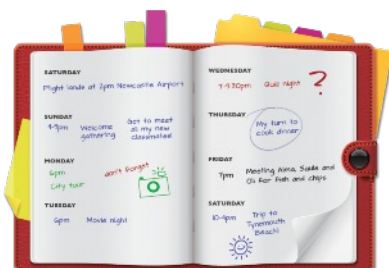 SATURDAY
Flight lands at 2pm Newcastle Airport
SUNDAY
4-9pm Welcome gathering
Get to meet all my new classmates!
MONDAY
6pm
City tour
don't forget
TUESDAY
6pm Movie night
WEDNESDAY
7-9.30pm Quiz night ?
THURSDAY
My turn to
cook dinner
FRIDAY
7pm Meeting Alma, Saida and
Oli for fish and chips
SATURDAY
10-4pm Trip to
Tynemouth
Beach!